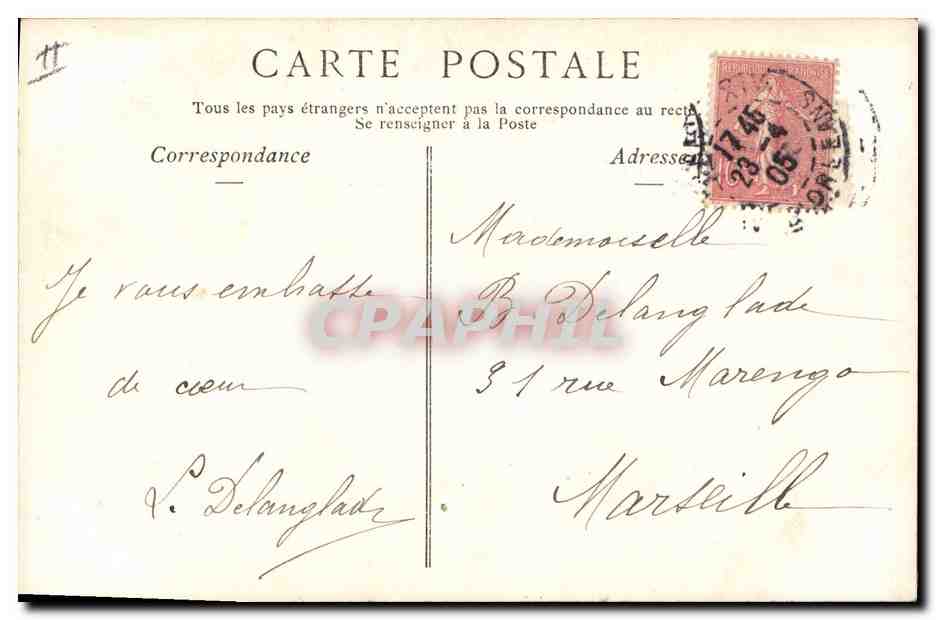 11
CARTE POSTALE
Tous les pays étrangers n'acceptent pas la correspondance au recto
Se renseigner à la Poste
Correspondance
Adresse
REPUBLIQUE FRANÇAISE
17 45
23 -4
05
ORLEANS
Je vous embrasse
de cœur
L. Delanglade
Mademoiselle
B. Delanglade
31 rue Marengo
Marseille
CPAPHIL